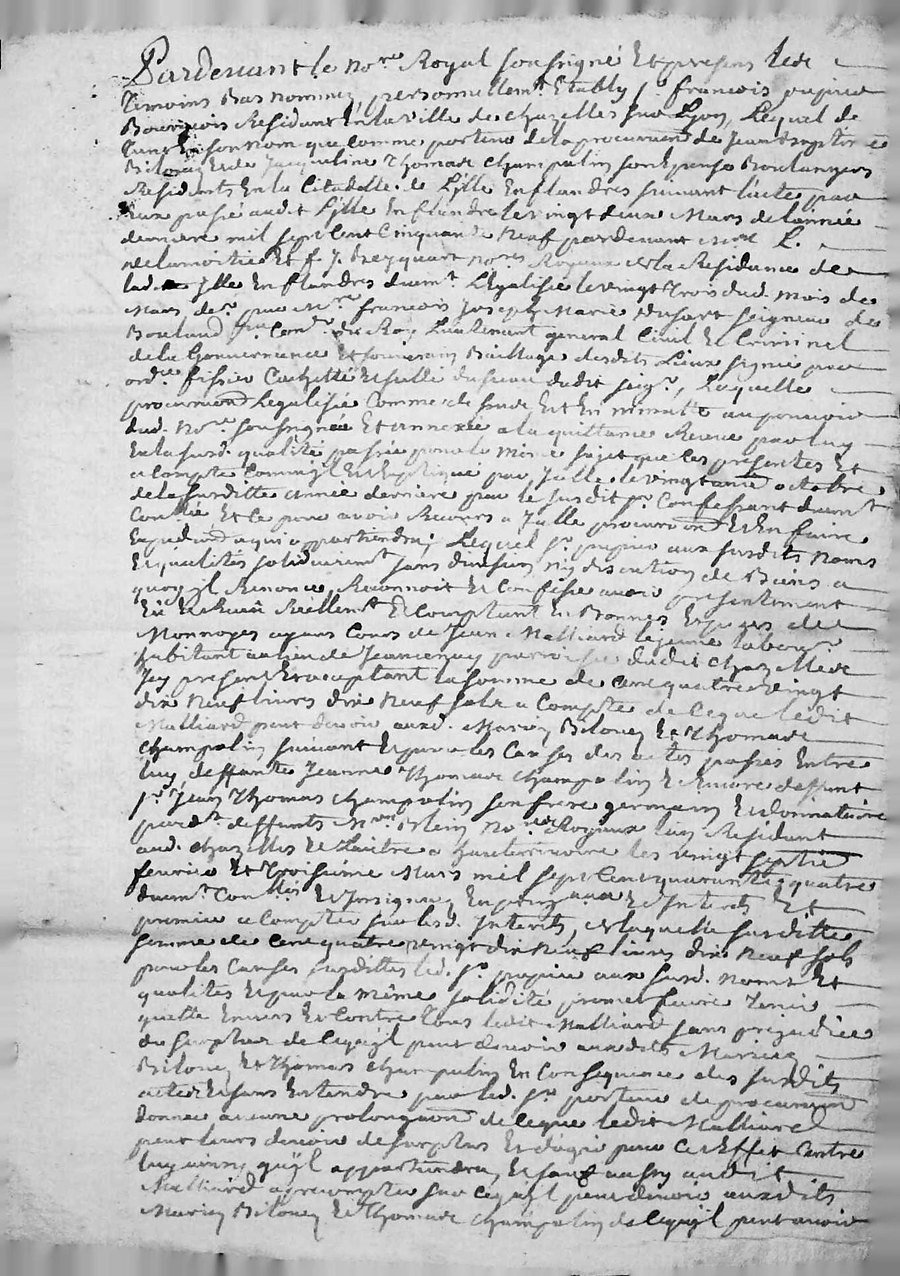 Pardevant le no.re Royal soussigné Et presens les
Temoins Bas nommez, personnellem.t Etably s.r francois pupier
Bourgeois Residant En la ville de chazelles sur Lyon, Lequel de
son nom que comme porteur de la procuration de Jean Baptiste
Biloney et de Jacqueline Thomas Champalin son Epouse Boulangers
Residants En la Citadelle de Lylle En flandres suivant l'acte par
Eux passé audit Lylle En flandre le vingt deux Mars de l'année
derniere mil sept Cent Cinquante Neuf pardevant L.
Delamottié Et f. J. no.res Royaux de la Residence de
lad. Lylle En flandres duem.t Legalisé le vingt Trois dud. mois de
Mars der. par M.re francois Joseph Marie Dusart seigneur de
Bouland Con.er du Roy Lieutenant general Civil Et Criminel
de la Gouvernance Et souverain Bailliage desdits Lieux signée par
ord.re Cachetté Et scellé du sceau dudit seig.r, Laquelle
procuration Legalisée Comme dessus Est En minutte au pouvoir
dud. No.re soussigné Et annexée a la quittance Reçue par luy
En lad. qualité passée pour le même sujet que les presentes Et
a compte Comme il Est Expliqué par Jcelle le vingt octobre
de la susditte année derniere par le susdit s.r Confessant duem.t
Con.llée Et ce pour avoir Recours a Jcelle procuration Et En faire
Expedition a qui appartiendra; Lequel s.r pupier aux susdits Noms
Et qualités solidairem.t sans division ny discution de Biens a
quoy il Renonce, Reconnoit Et Confesse avoir presentement
Eü Et Reçu Réellem.t Et Comptant En Bonnes Especes de
Monnoyes ayans Cours de Jean Malliard le jeune labour.r
habitant au lieu de parroisse dudit chazelles
Jcy present Et acceptant la somme de Cent quatre vingt
dix Neuf livres dix Neuf sols a Compte de ce que ledit
Malliard peut devoir auxd. Mariez Biloney Et Thomas
champalin suivant Et pour les Causes des actes passés Entre
luy deffunte Jeanne Thomas champalin Et Encore deffunt
s.r Jean Thomas champalin son frere germain Et donnataire
par dt. deffunts M.res Blein No.res Royaux l'un Residant
aud. chazelles Et l'autre a hauterivoire les vingt septie
fevrier Et Troisiéme Mars mil sept Cent quarante quatre
duem.t Con.llés Et Jnsignuez En principaux Et Jnterets Et
premier a Compter sur lesd. Jnterets, de laquelle susditte
somme de Cent quatre vingt dix Neuf livres dix Neuf sols
pour les Causes susdittes led. s.r pupier aux susd. Noms Et
qualités Et par la même solidité promet faire Tenir
quitte Envers Et Contre Tous ledit Malliard sans prejudice
du surplus de ce qu'il peut devoir auxdits Mariez
Biloney Et Thomas champalin En Consequence des susdits
actes Et sans Entendre par led. s.r porteur de procuration
donner aucune prolongation de ce que ledit Malliard
peut leurs devoir de surplus Et d'agir pour Cet Effet Contre
luy ainsy qu'il appartiendra, Et sauf aussy audit
Malliard a precompter sur ce qu'il peut devoir auxdits
Mariez Biloney Et Thomas champalin de ce qu'il peut avoir